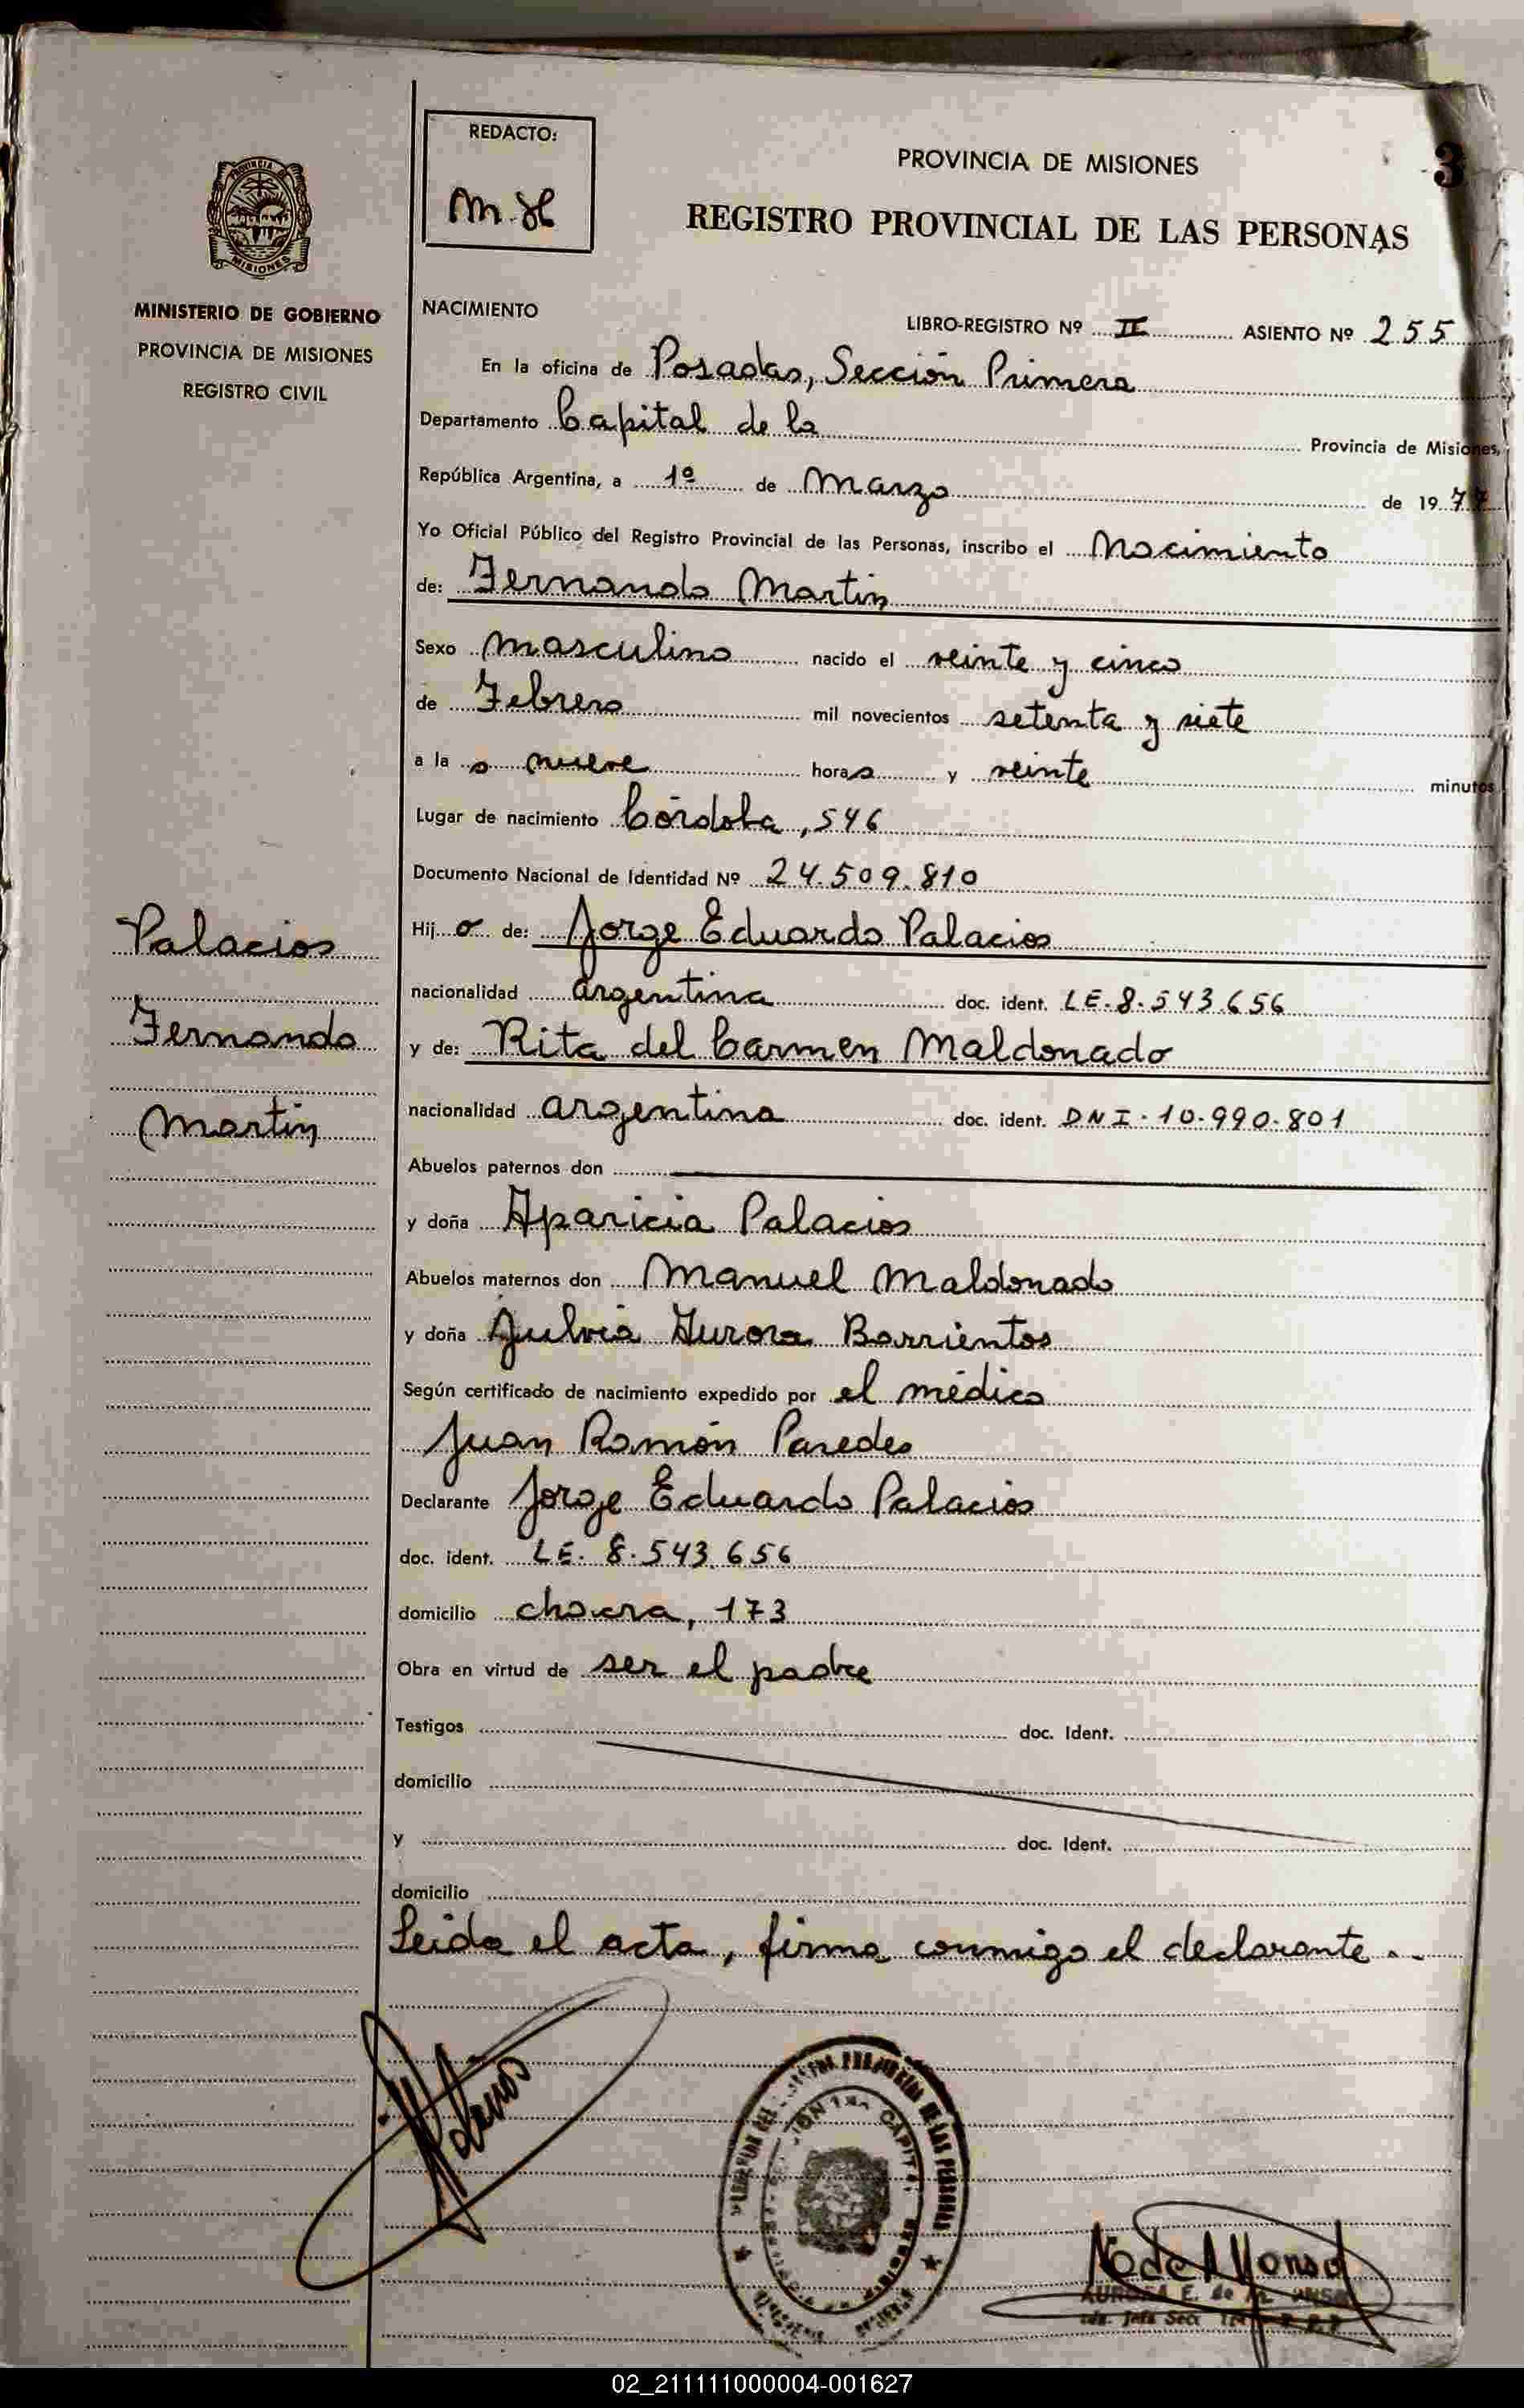 REDACTO:
M.H
PROVINCIA DE MISIONES
3
REGISTRO PROVINCIAL DE LAS PERSONAS
PROVINCIA DE
MISIONES
MINISTERIO DE GOBIERNO
PROVINCIA DE MISIONES
REGISTRO CIVIL
NACIMIENTO
LIBRO-REGISTRO Nº II ASIENTO Nº 255
En la oficina de Posadas, Sección Primera
Departamento Capital de la Provincia de Misiones,
República Argentina, a 1º de Marzo de 1977
Yo Oficial Público del Registro Provincial de las Personas, inscribo el Nacimiento
de: Fernando Martin
Sexo masculino nacido el veinte y cinco
de Febrero mil novecientos setenta y siete
a la s nueve horas y veinte minutos
Lugar de nacimiento Córdoba, 546
Documento Nacional de Identidad Nº 24.509.810
Hijo de: Jorge Eduardo Palacios
nacionalidad argentina doc. ident. LE.8.543.656
y de: Rita del Carmen Maldonado
nacionalidad argentina doc. ident. DNI.10.990.801
Palacios
Fernando
Martin
Abuelos paternos don
y doña Aparicia Palacios
Abuelos maternos don Manuel Maldonado
y doña Julvia Aurora Barrientos
Según certificado de nacimiento expedido por el médico
Juan Ramón Paredes
Declarante Jorge Eduardo Palacios
doc. ident. LE. 8.543.656
domicilio chacra, 173
Obra en virtud de ser el padre
Testigos doc. Ident.
domicilio
y doc. Ident.
domicilio
Leida el acta, firma conmigo el declarante.-
DE LAS PERSONAS
AURORA E. de
02_211111000004-001627